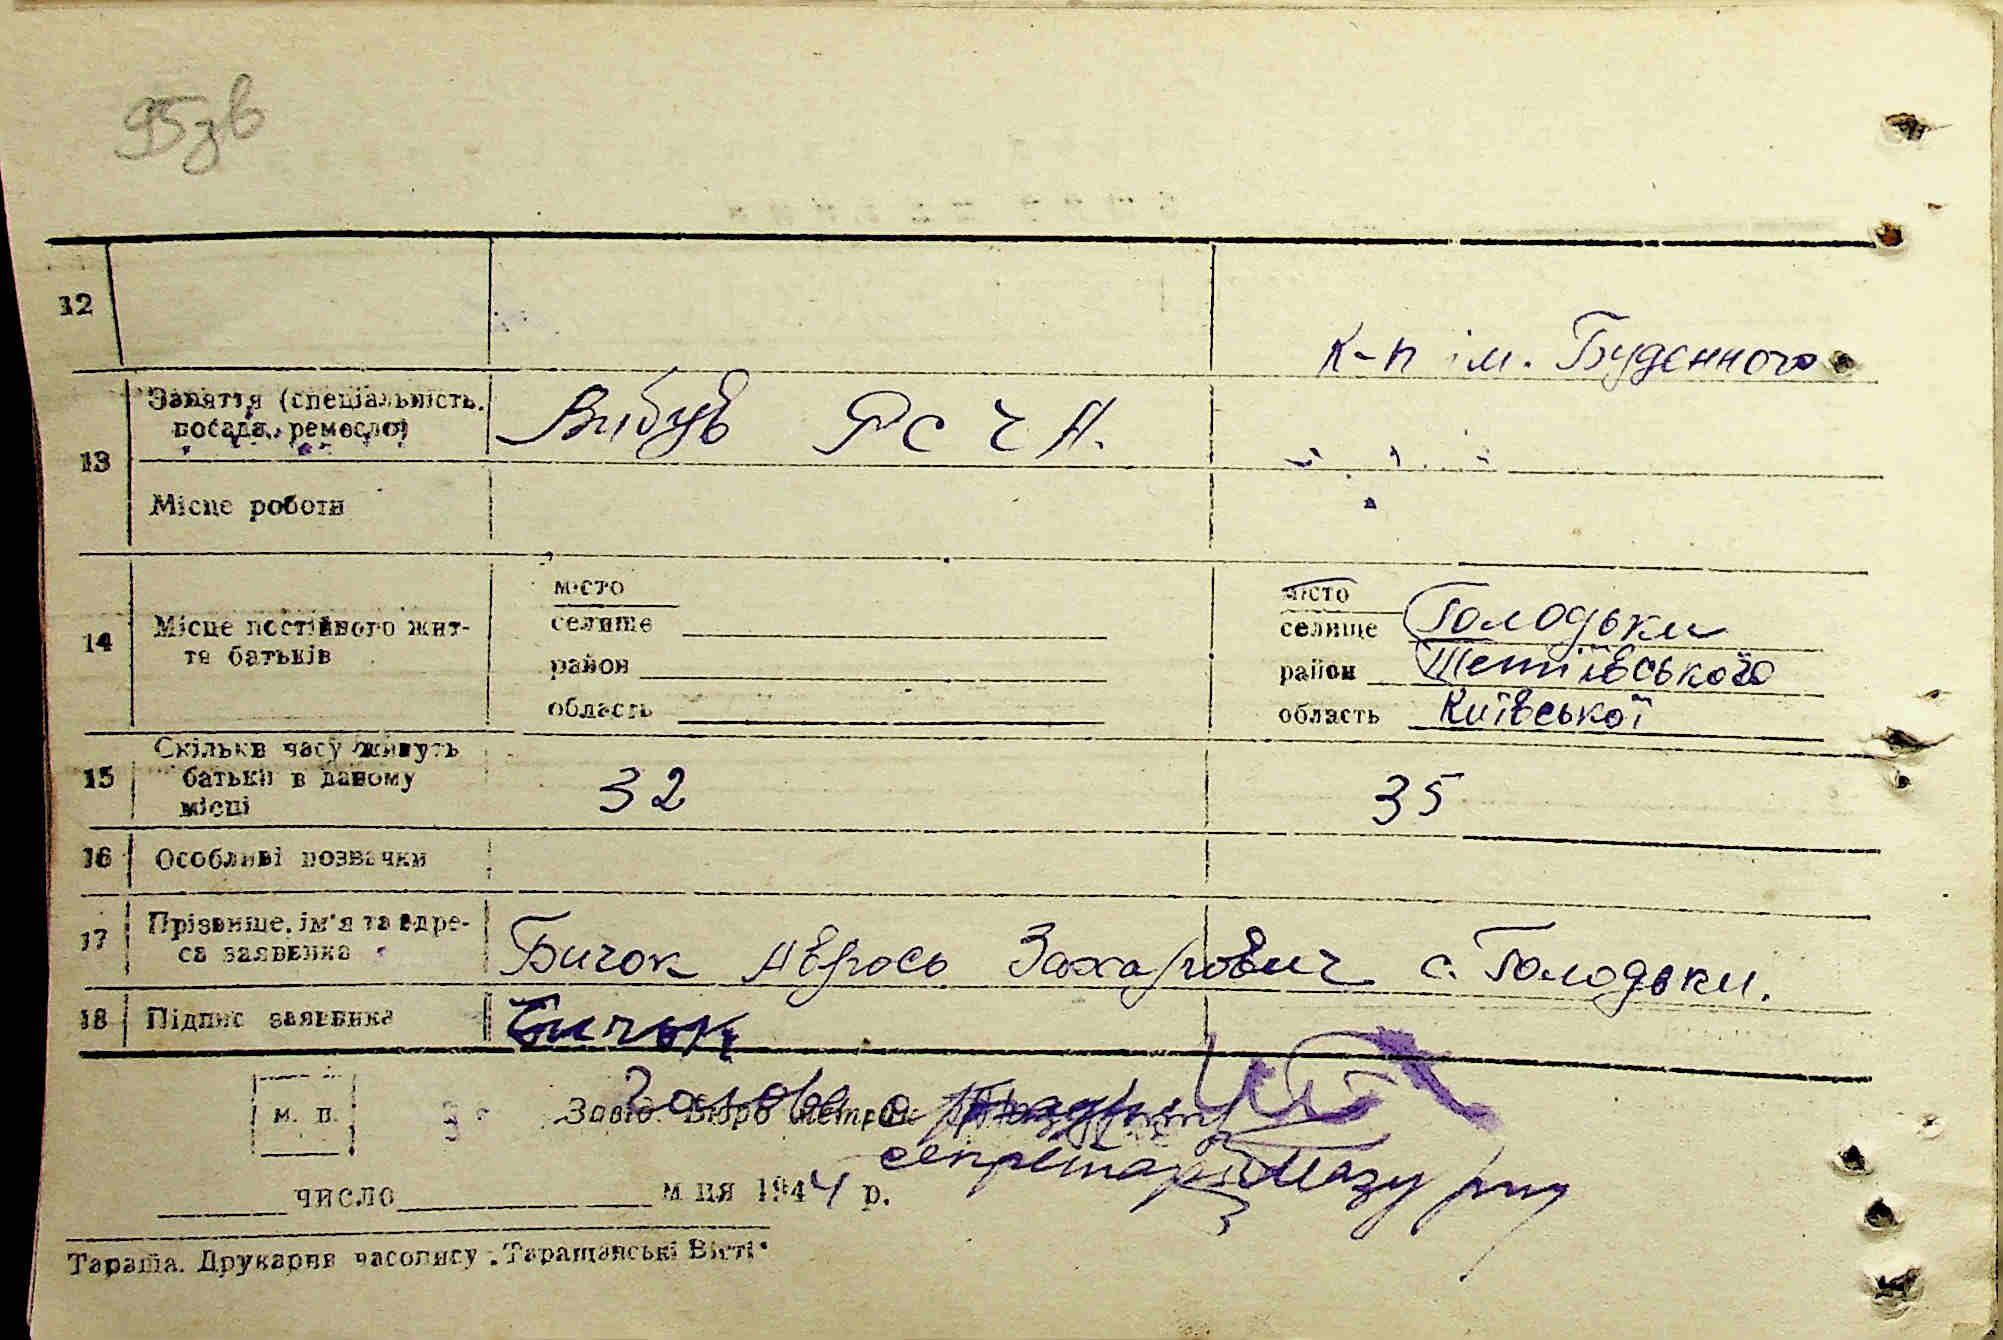 95зв
12
к-п ім. Буденного
13 Заняття (спеціальність, посада, ремесло) Вибув РСЧА.
Місце роботи
14 Місце постійного життя батьків
місто
селище
район
область
місто
селище Голодьки
район Тетіївського
область Київської
15 Скільки часу живуть батьки в даному місці 32 35
16 Особливі розначки
17 Прізвище, ім'я та адреса заявника Бичок Аврось Захарович с. Голодьки.
18 Підпис заявника Бичок
м. п. Завід. Бюро метрик Голова
секретар Мазур
число м-ця 1944 р.
Тараща. Друкарня часопису „Таращанські Вісті"